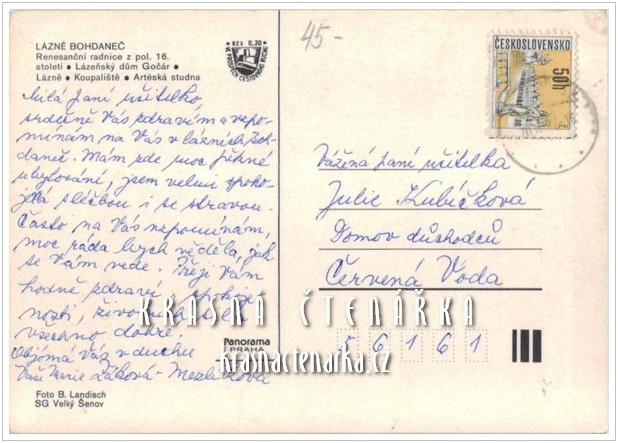 LÁZNĚ BOHDANEČ
Renesanční radnice z pol. 16.
století • Lázeňský dům Gočár •
Lázně • Koupaliště • Artéská studna
Kčs 0,20
45-
ČESKOSLOVENSKO
50h
Milá paní učitelko,
srdečně Vás zdravím a vzpo-
mínám na Vás v lázních Boh-
daneč. Mám zde moc pěkné
ubytování, jsem velmi spoko-
jena službou i se stravou.
Často na Vás vzpomínám,
moc ráda bych věděla, jak
se Vám vede. Přeji Vám
hodně zdraví, spokoje-
nosti, život
všechno dobré.
Objímá Vás v duchu
Vaše Marie Žáková-
Vážená paní učitelka
Julie Kubíčková
Domov důchodců
Červená Voda
56161
KRÁSNÁ ČTENÁŘKA
krasnactenarka.cz
Panorama
PRAHA
Foto B. Landisch
SG Velký Šenov